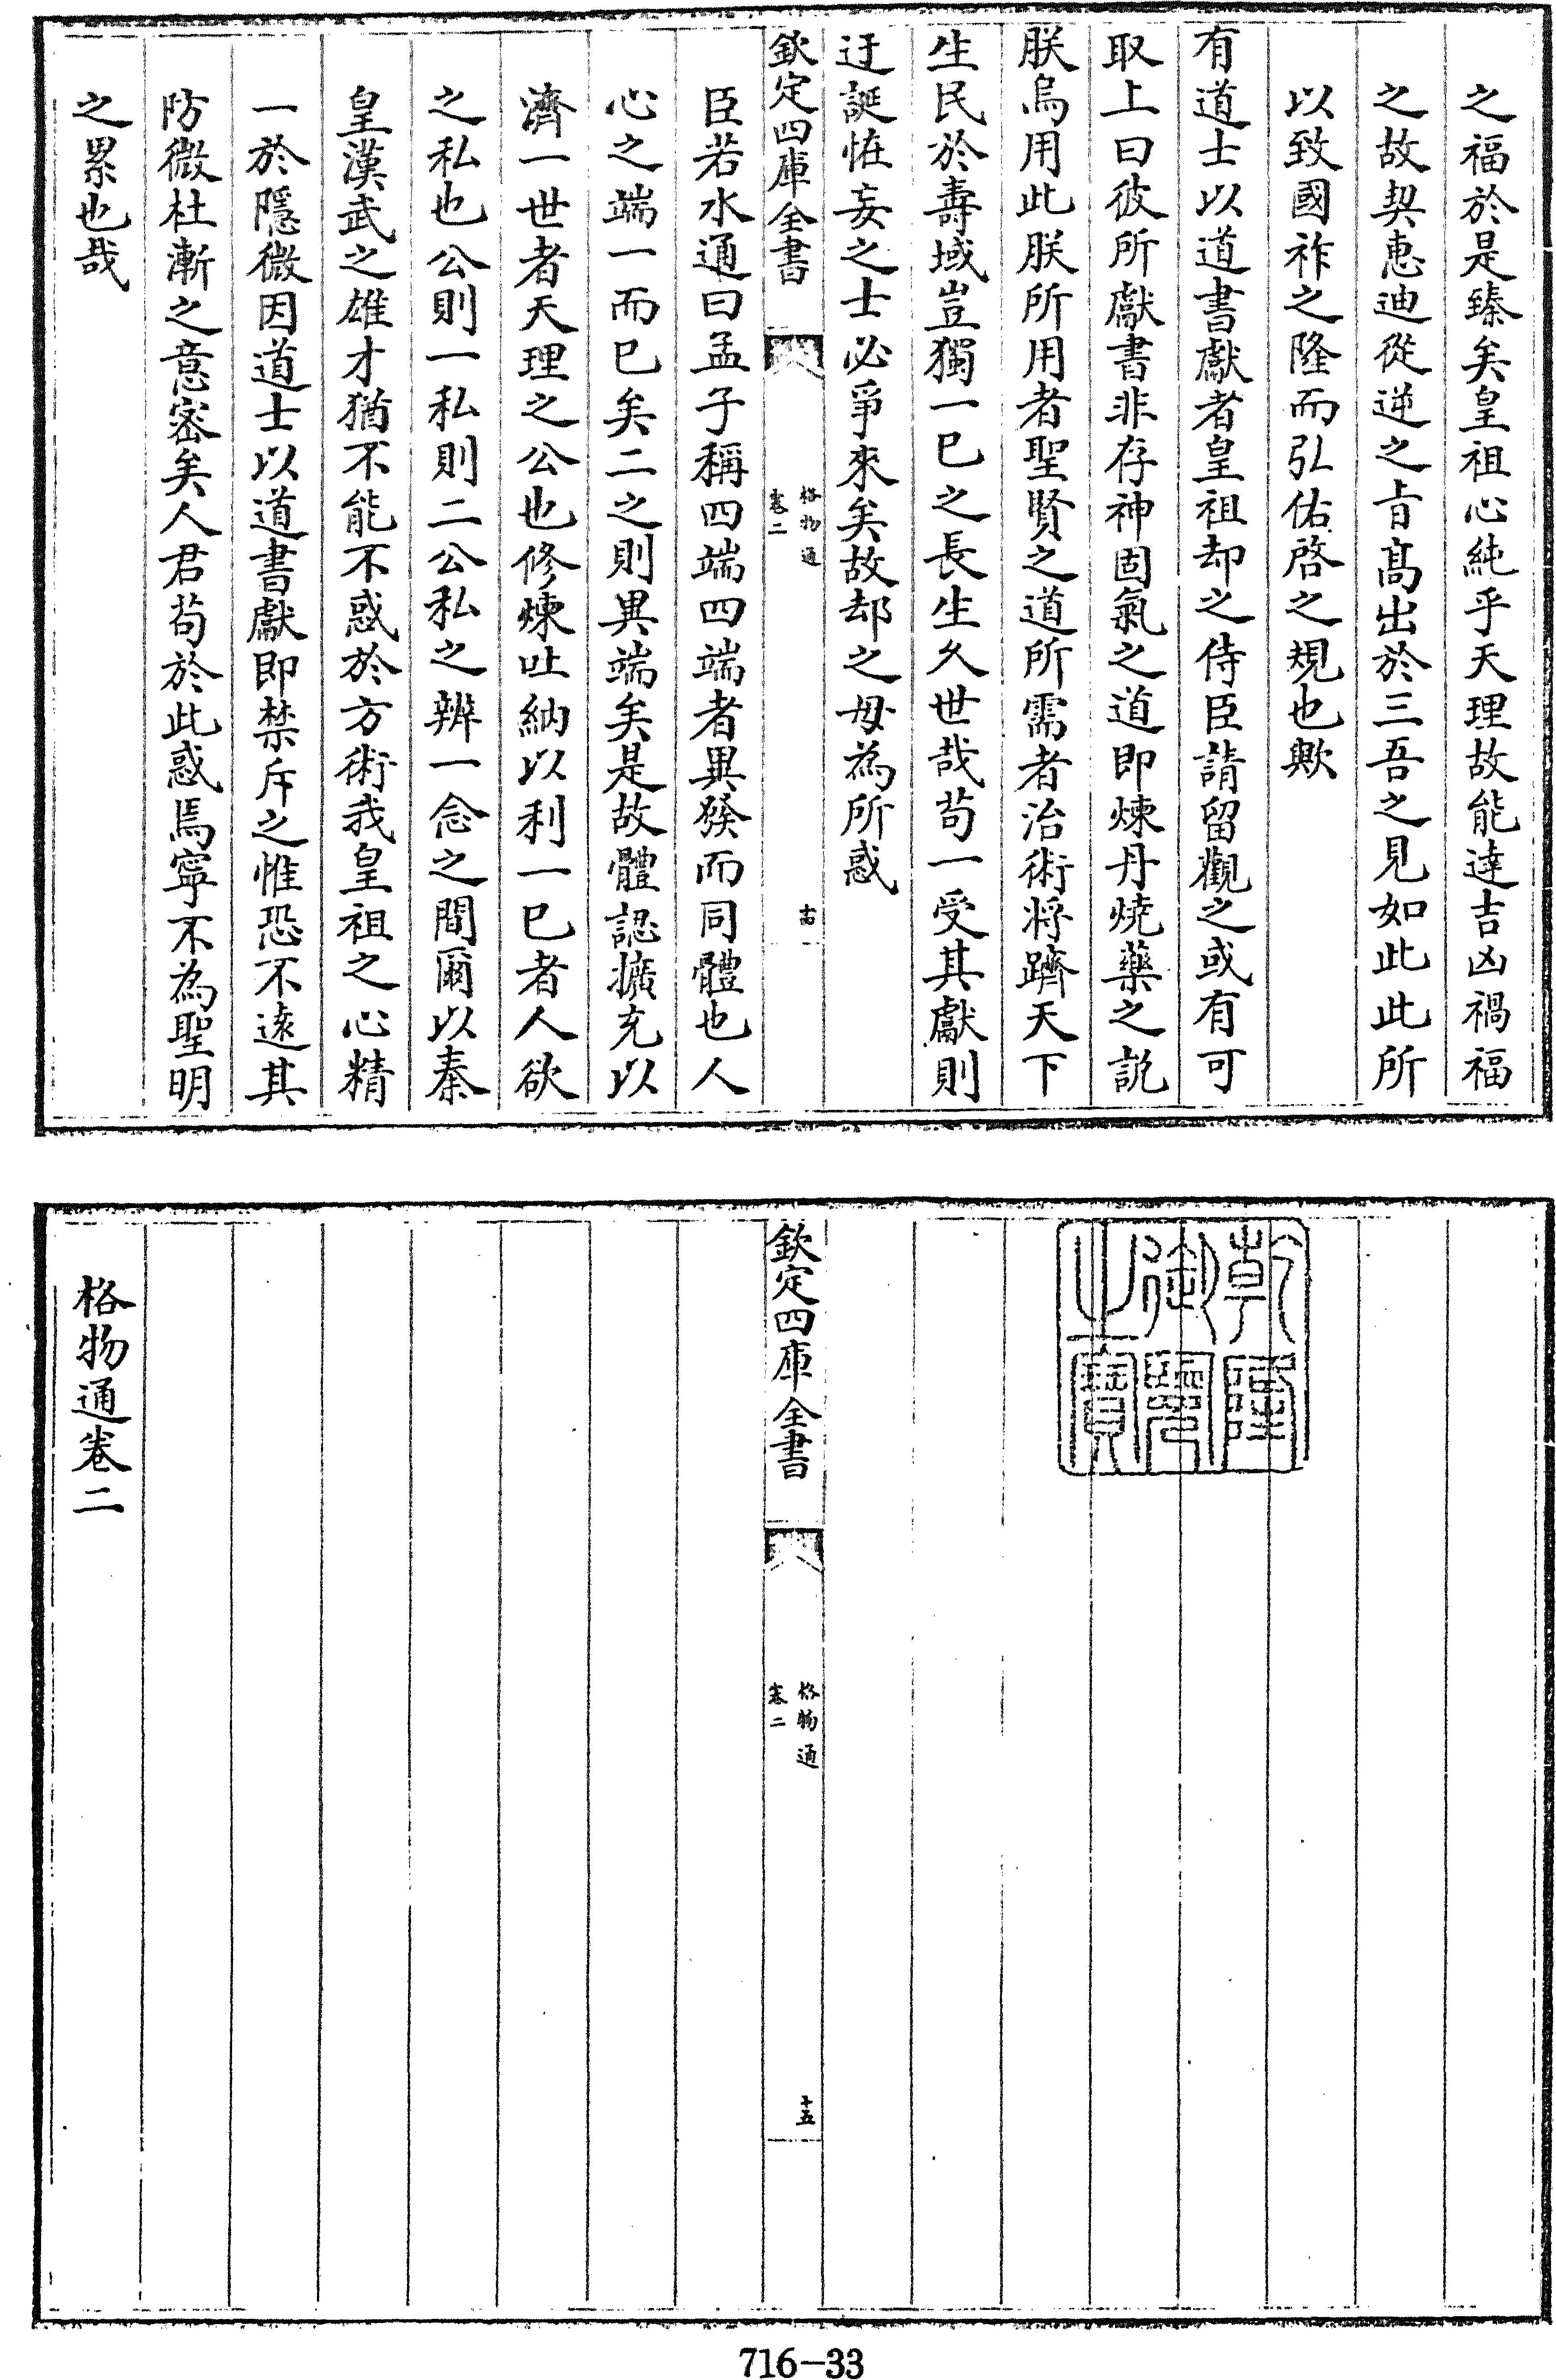 之福於是臻矣皇祖心純乎天理故能達吉凶禍福
之故契惠迪從逆之㫖髙出於三吾之見如此此所
以致國祚之隆而弘佑啓之規也歟
有道士以道書獻者皇祖却之侍臣請留觀之或有可
取上曰彼所獻書非存神固氣之道即煉丹燒藥之説
朕烏用此朕所用者聖賢之道所需者治術将躋天下
生民於壽域豈獨一已之長生久世哉茍一受其獻則
迂誕恠妄之士必爭來矣故却之毋為所惑
欽定四庫全書
格物通
卷二
十四
臣若水通曰孟子稱四端四端者異發而同體也人
心之端一而已矣二之則異端矣是故體認擴充以
濟一世者天理之公也修煉吐納以利一已者人欲
之私也公則一私則二公私之辨一念之間爾以秦
皇漢武之雄才猶不能不惑於方術我皇祖之心精
一於隱微因道士以道書獻即禁斥之惟恐不逺其
防微杜漸之意宻矣人君茍於此惑焉寧不為聖明
之累也哉
乾隆
御覽
之寶
欽定四庫全書
格物通
卷二
十五
格物通卷二
716-33